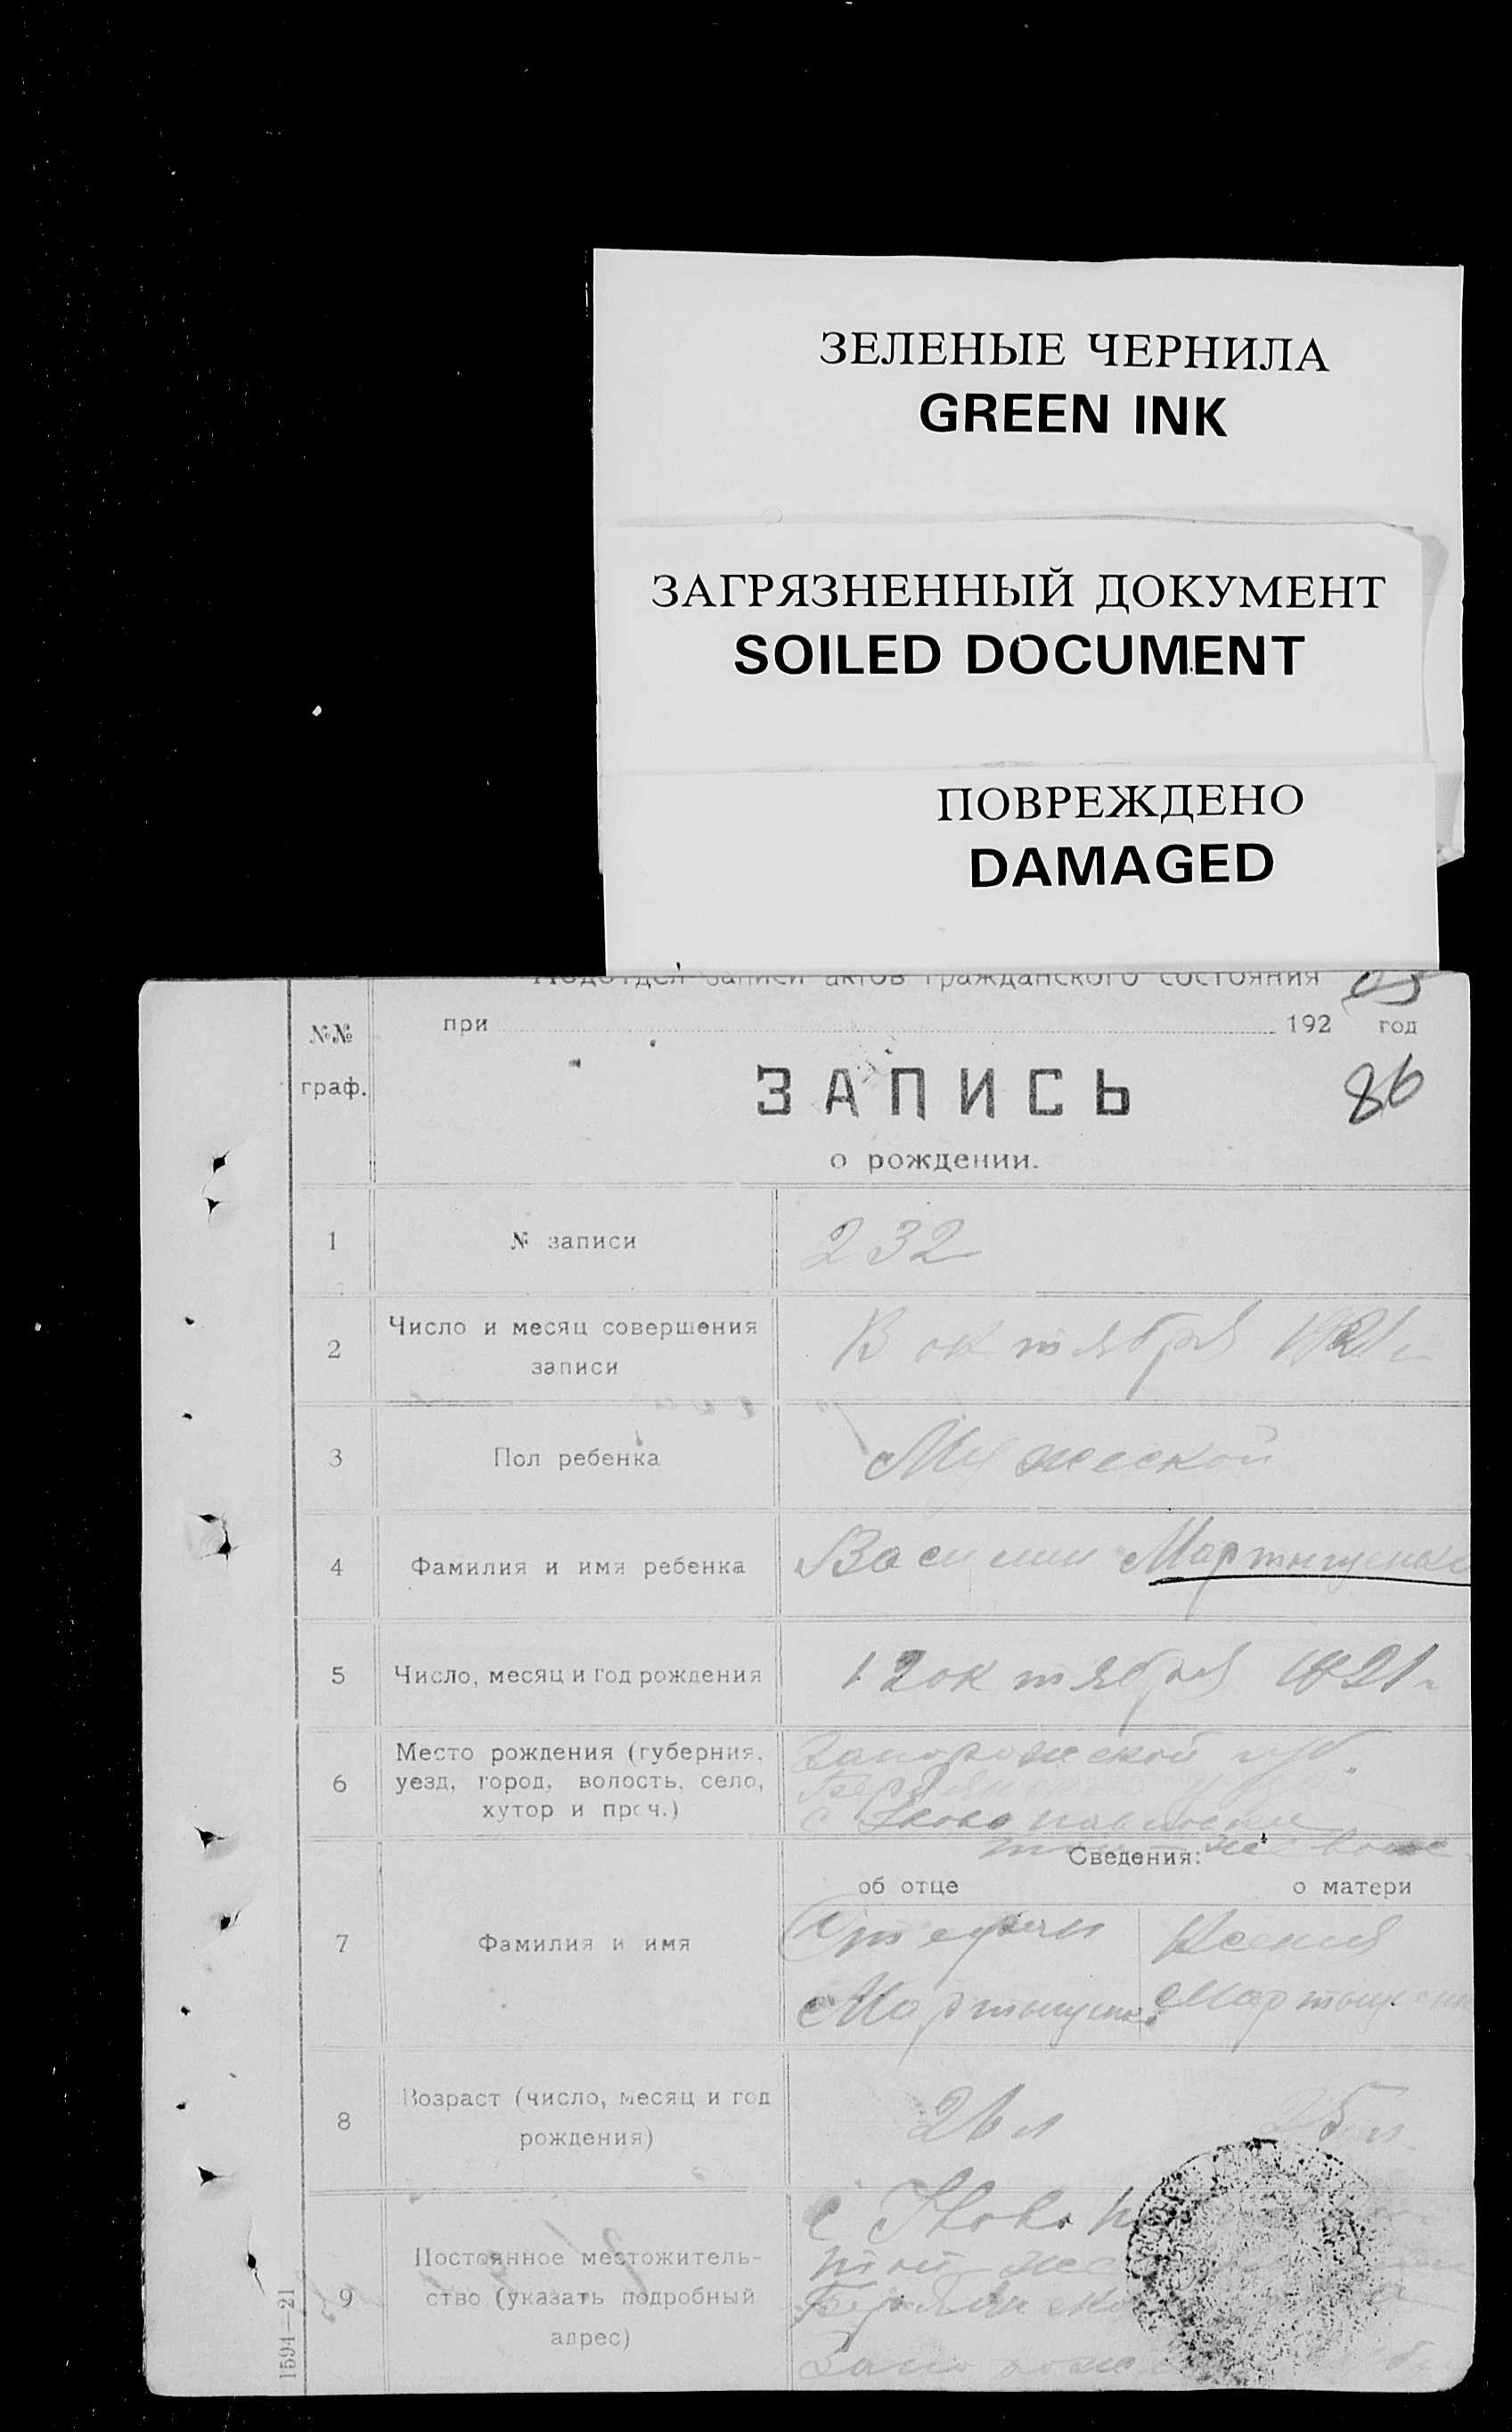 ЗЕЛЕНЫЕ ЧЕРНИЛА
GREEN INK
ЗАГРЯЗНЕННЫЙ ДОКУМЕНТ
SOILED DOCUMENT
ПОВРЕЖДЕНО
DAMAGED
Подотдел записи актов гражданского состояния
№№ граф.
при 192 год
ЗАПИСЬ
86
о рождении.
1 № записи 232
2 Число и месяц совершения
записи
октября 1921 г
3 Пол ребенка Мужеской
4 Фамилия и имя ребенка Василии Мартыщенко
5 Число, месяц и год рождения 12 октября 1921 г
6 Место рождения (губерния,
уезд, город, волость, село,
хутор и проч.)
Запорожской губ.
с Ново
Сведения:
об отце о матери
7 Фамилия и имя
Стефан Ксения
Мартыщенко Мартыщенк
8 Возраст (число, месяц и год
рождения)
26 л 25 л
9 Постоянное местожитель-
ство (указать подробный
адрес)
с Ново
той же
1594—21